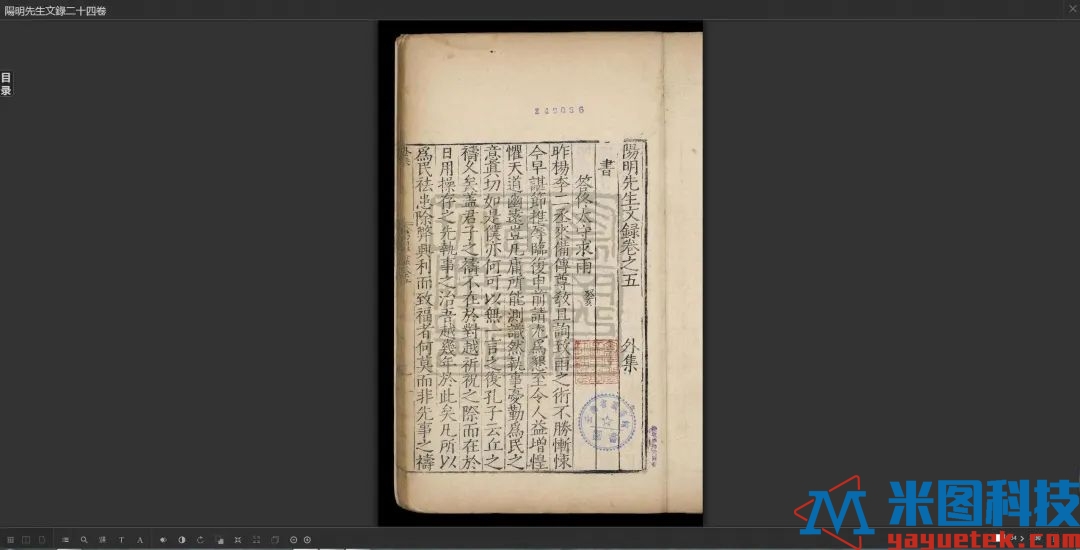 陽明先生文錄二十四卷
目
录
249056
陽明先生文錄卷之五 外集
書
答佟太守求雨 癸亥
昨楊李二丞來備傳尊教且詢致雨之術不勝慚悚
今早諶節推辱臨復申前請尤爲懇至令人益增惶
懼天道幽遠豈凡庸所能測識然執事憂勤爲民之
意真切如是僕亦何可以無一言之復孔子云丘之
禱久矣蓋君子之禱不在於對越祈祝之際而在於
日用操存之先執事之治吾越幾年於此矣凡所以
爲民祛患除弊興利而致福者何莫而非先事之禱
米图科技
yayuetek.com